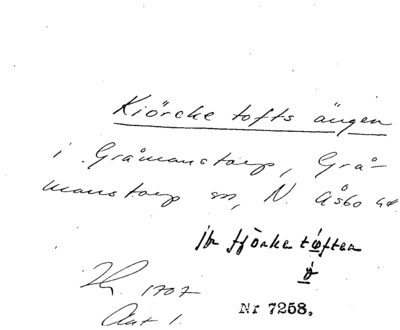 Kiörcke tofts ängen
i Gråmanstorp, Grå-
manstorp sn, N. Åsbo hd.
jbr fjörke tøften
ö
1707
Akt 1.
Nr 7258.